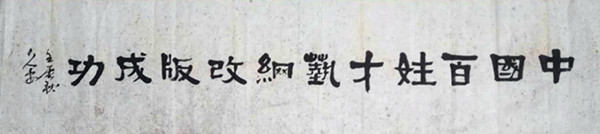 中國百姓才藝網改版成功